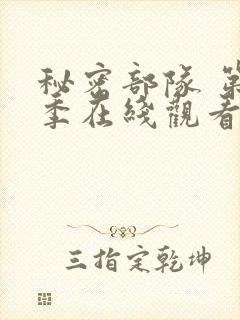 秘密部隊 第
季在綫觀看
三指定乾坤